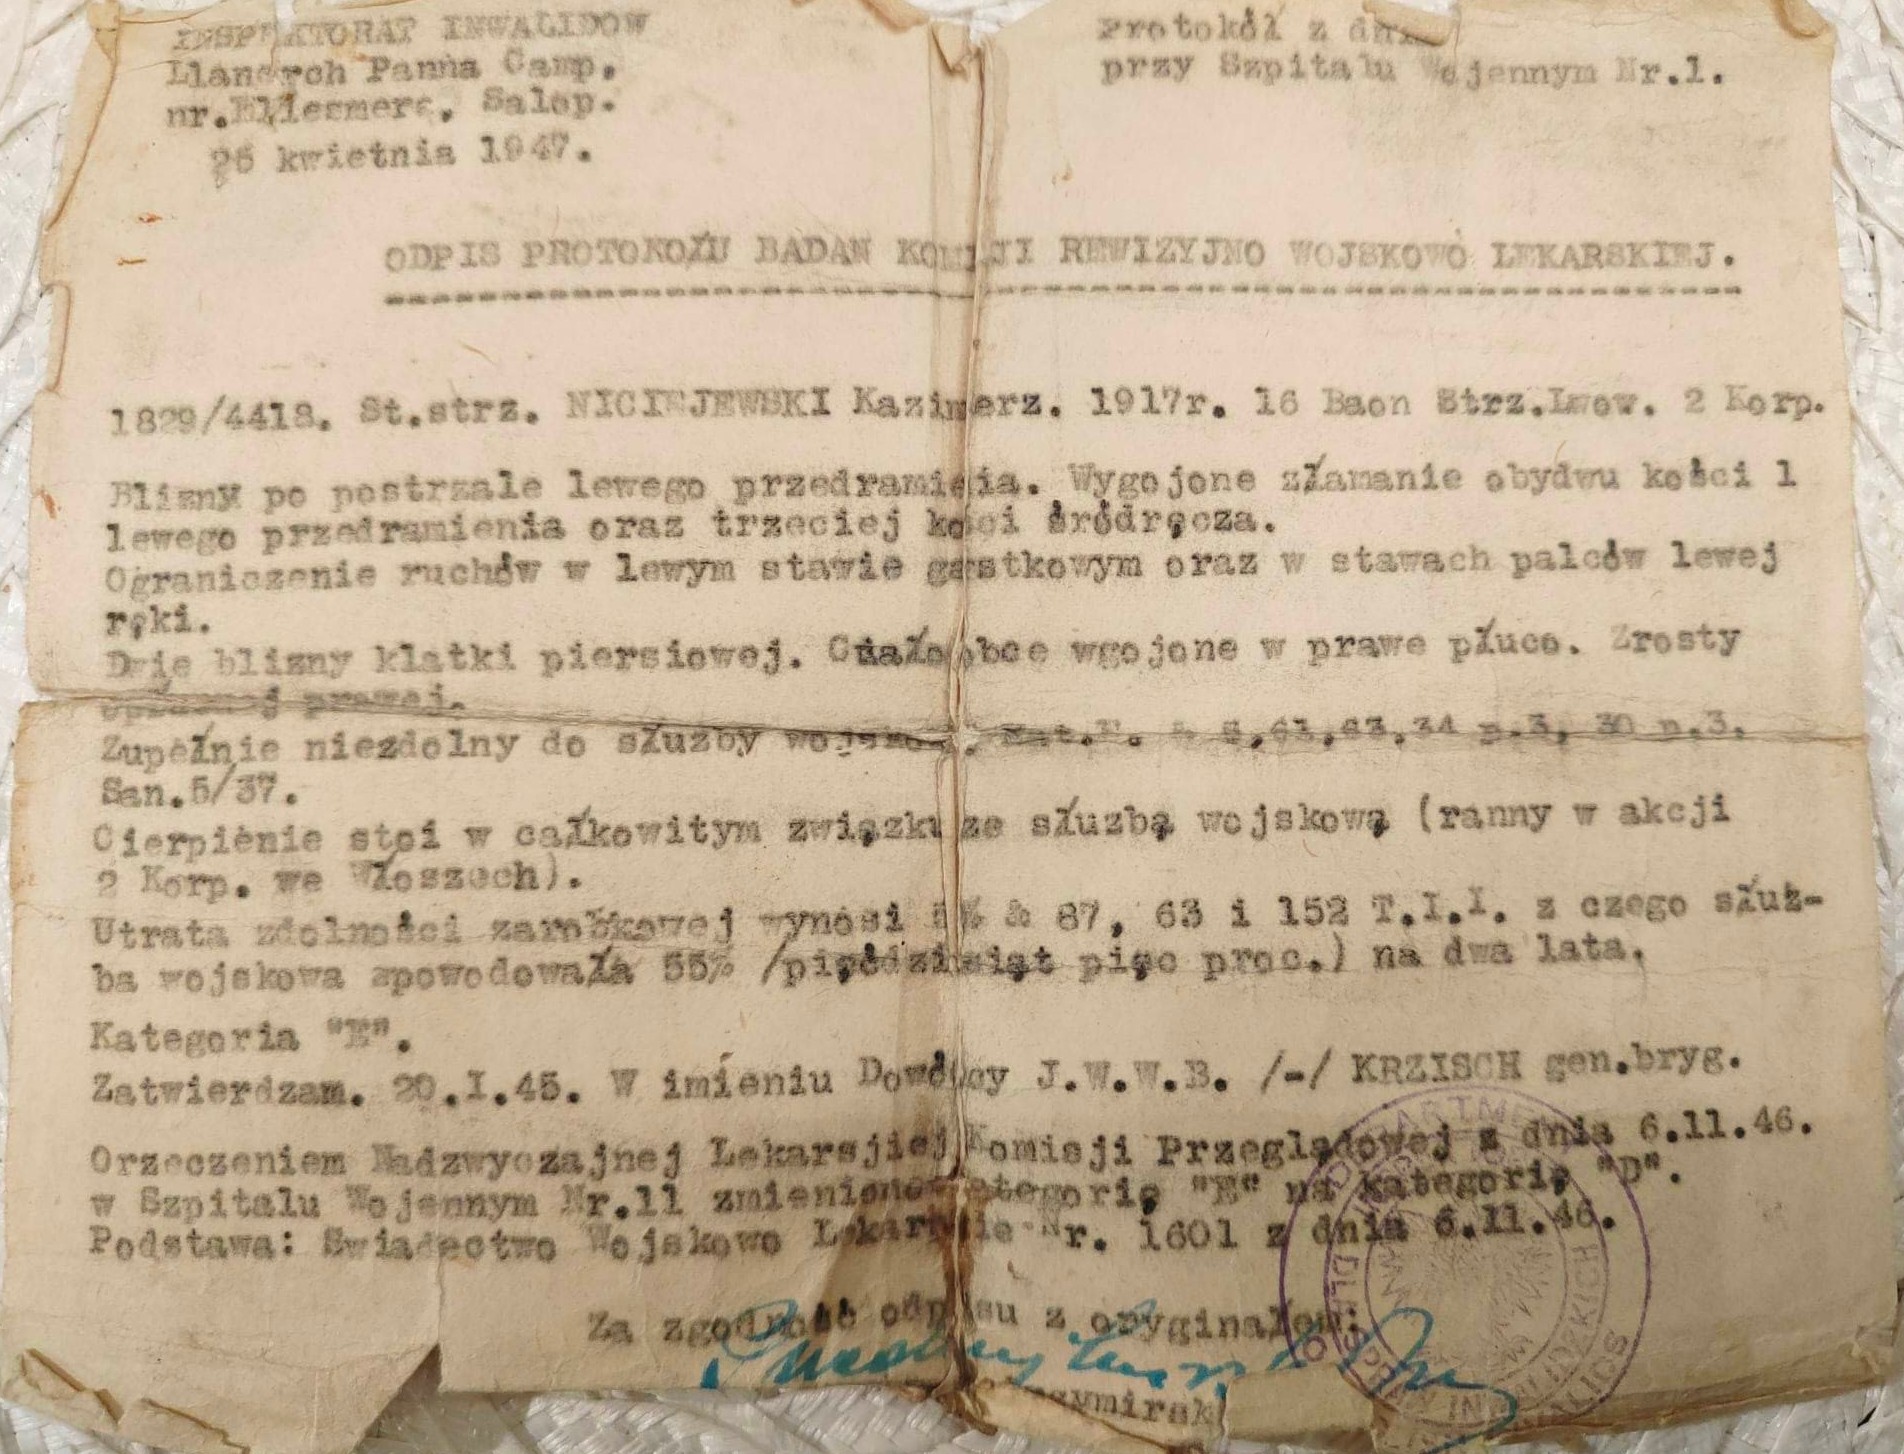 INSPEKTORAT INWALIDOW
Llanerch Panna Camp.
nr.Ellesmere, Salop.
26 kwietnia 1947.
Protokół z dnia
przy Szpitalu Wojennym Nr.1.
ODPIS PROTOKOŁU BADAN KOMISJI REWIZYJNO WOJSKOWO LEKARSKIEJ.
1829/4418. St.strz. NICIEJEWSKI Kazimerz. 1917r. 16 Baon Strz.Lwow. 2 Korp.
Blizny po postrzale lewego przedramięia. Wygojone złamanie obydwu kości l
lewego przedramienia oraz trzeciej kości śródręcza.
Ograniczenie ruchów w lewym stawie gastkowym oraz w stawach palców lewej
ręki.
Dwie blizny klatki piersiowej. Ciało obce wgojone w prawe płuco. Zrosty
prawej.
Zupełnie niezdolny do służby wojskow. Kat.E. & 8,61,63,34 p.3, 30 p.3.
San.5/37.
Cierpienie stoi w całkowitym związku ze służbą wojskową (ranny w akcji
2 Korp. we Włoszech).
Utrata zdolności zarobkowej wynosi & 87, 63 i 152 T.I.I. z czego służ-
ba wojskowa spowodowała 55% /pięćdzisiąt pięc proc.) na dwa lata.
Kategoria "E".
Zatwierdzam. 20.I.45. W imieniu Dowócy J.W.W.B. /-/ KRZISCH gen.bryg.
Orzeczeniem Nadzwyczajnej Lekarsjiej Komisji Przeglądowej z dnia 6.11.46.
w Szpitalu Wojennym Nr.11 zmieniono kategorię "E" na kategorię "D".
Podstawa: Swiadectwo Wojskowo Lekarskie Nr. 1601 z dnia 6.11.46.
Za zgodność odpisu z oryginałem: